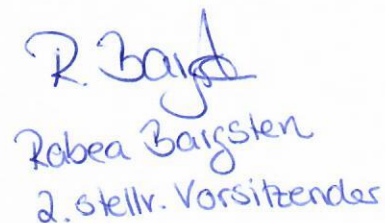 R. Bargst
Rabea Bargsten
2. stellv. Vorsitzender